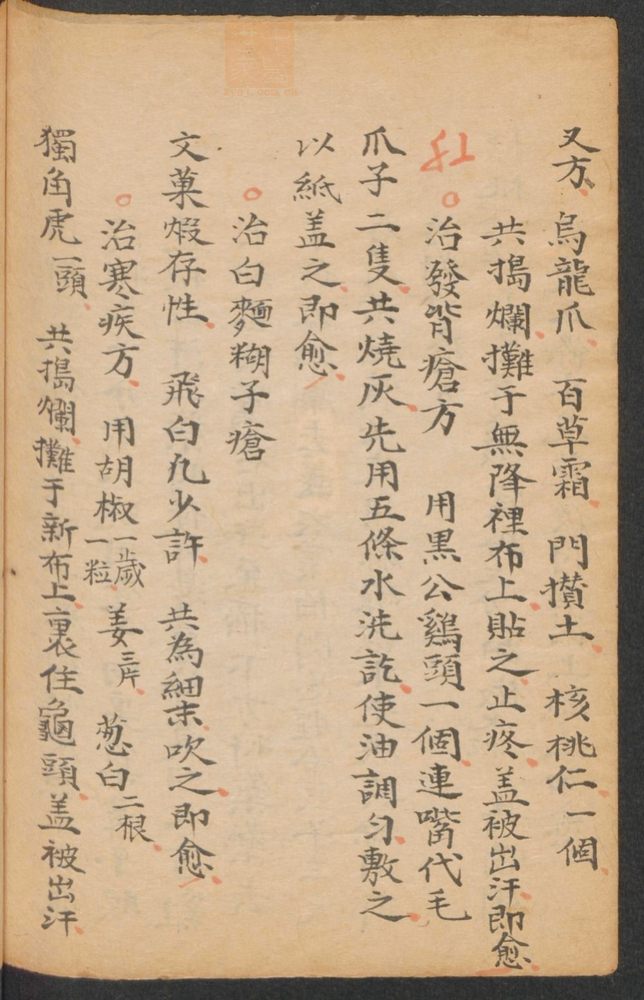 又方 烏龍爪 百草霜 門攢土 核桃仁一個
共搗爛攤于無降裡布上貼之止疼蓋被出汗即愈
治發背瘡方 用黑公鷄頭一個連嘴代毛
爪子二隻共燒灰先用五條水洗訖使油調匀敷之
以紙盖之即愈
治白麵糊子瘡
文菓煆存性 飛白凡少許 共為細末吹之即愈
治寒疾方 用胡椒一歲一粒 姜三片 葱白二根
獨角虎一頭 共搗爛攤于新布上裹住龜頭盖被出汗